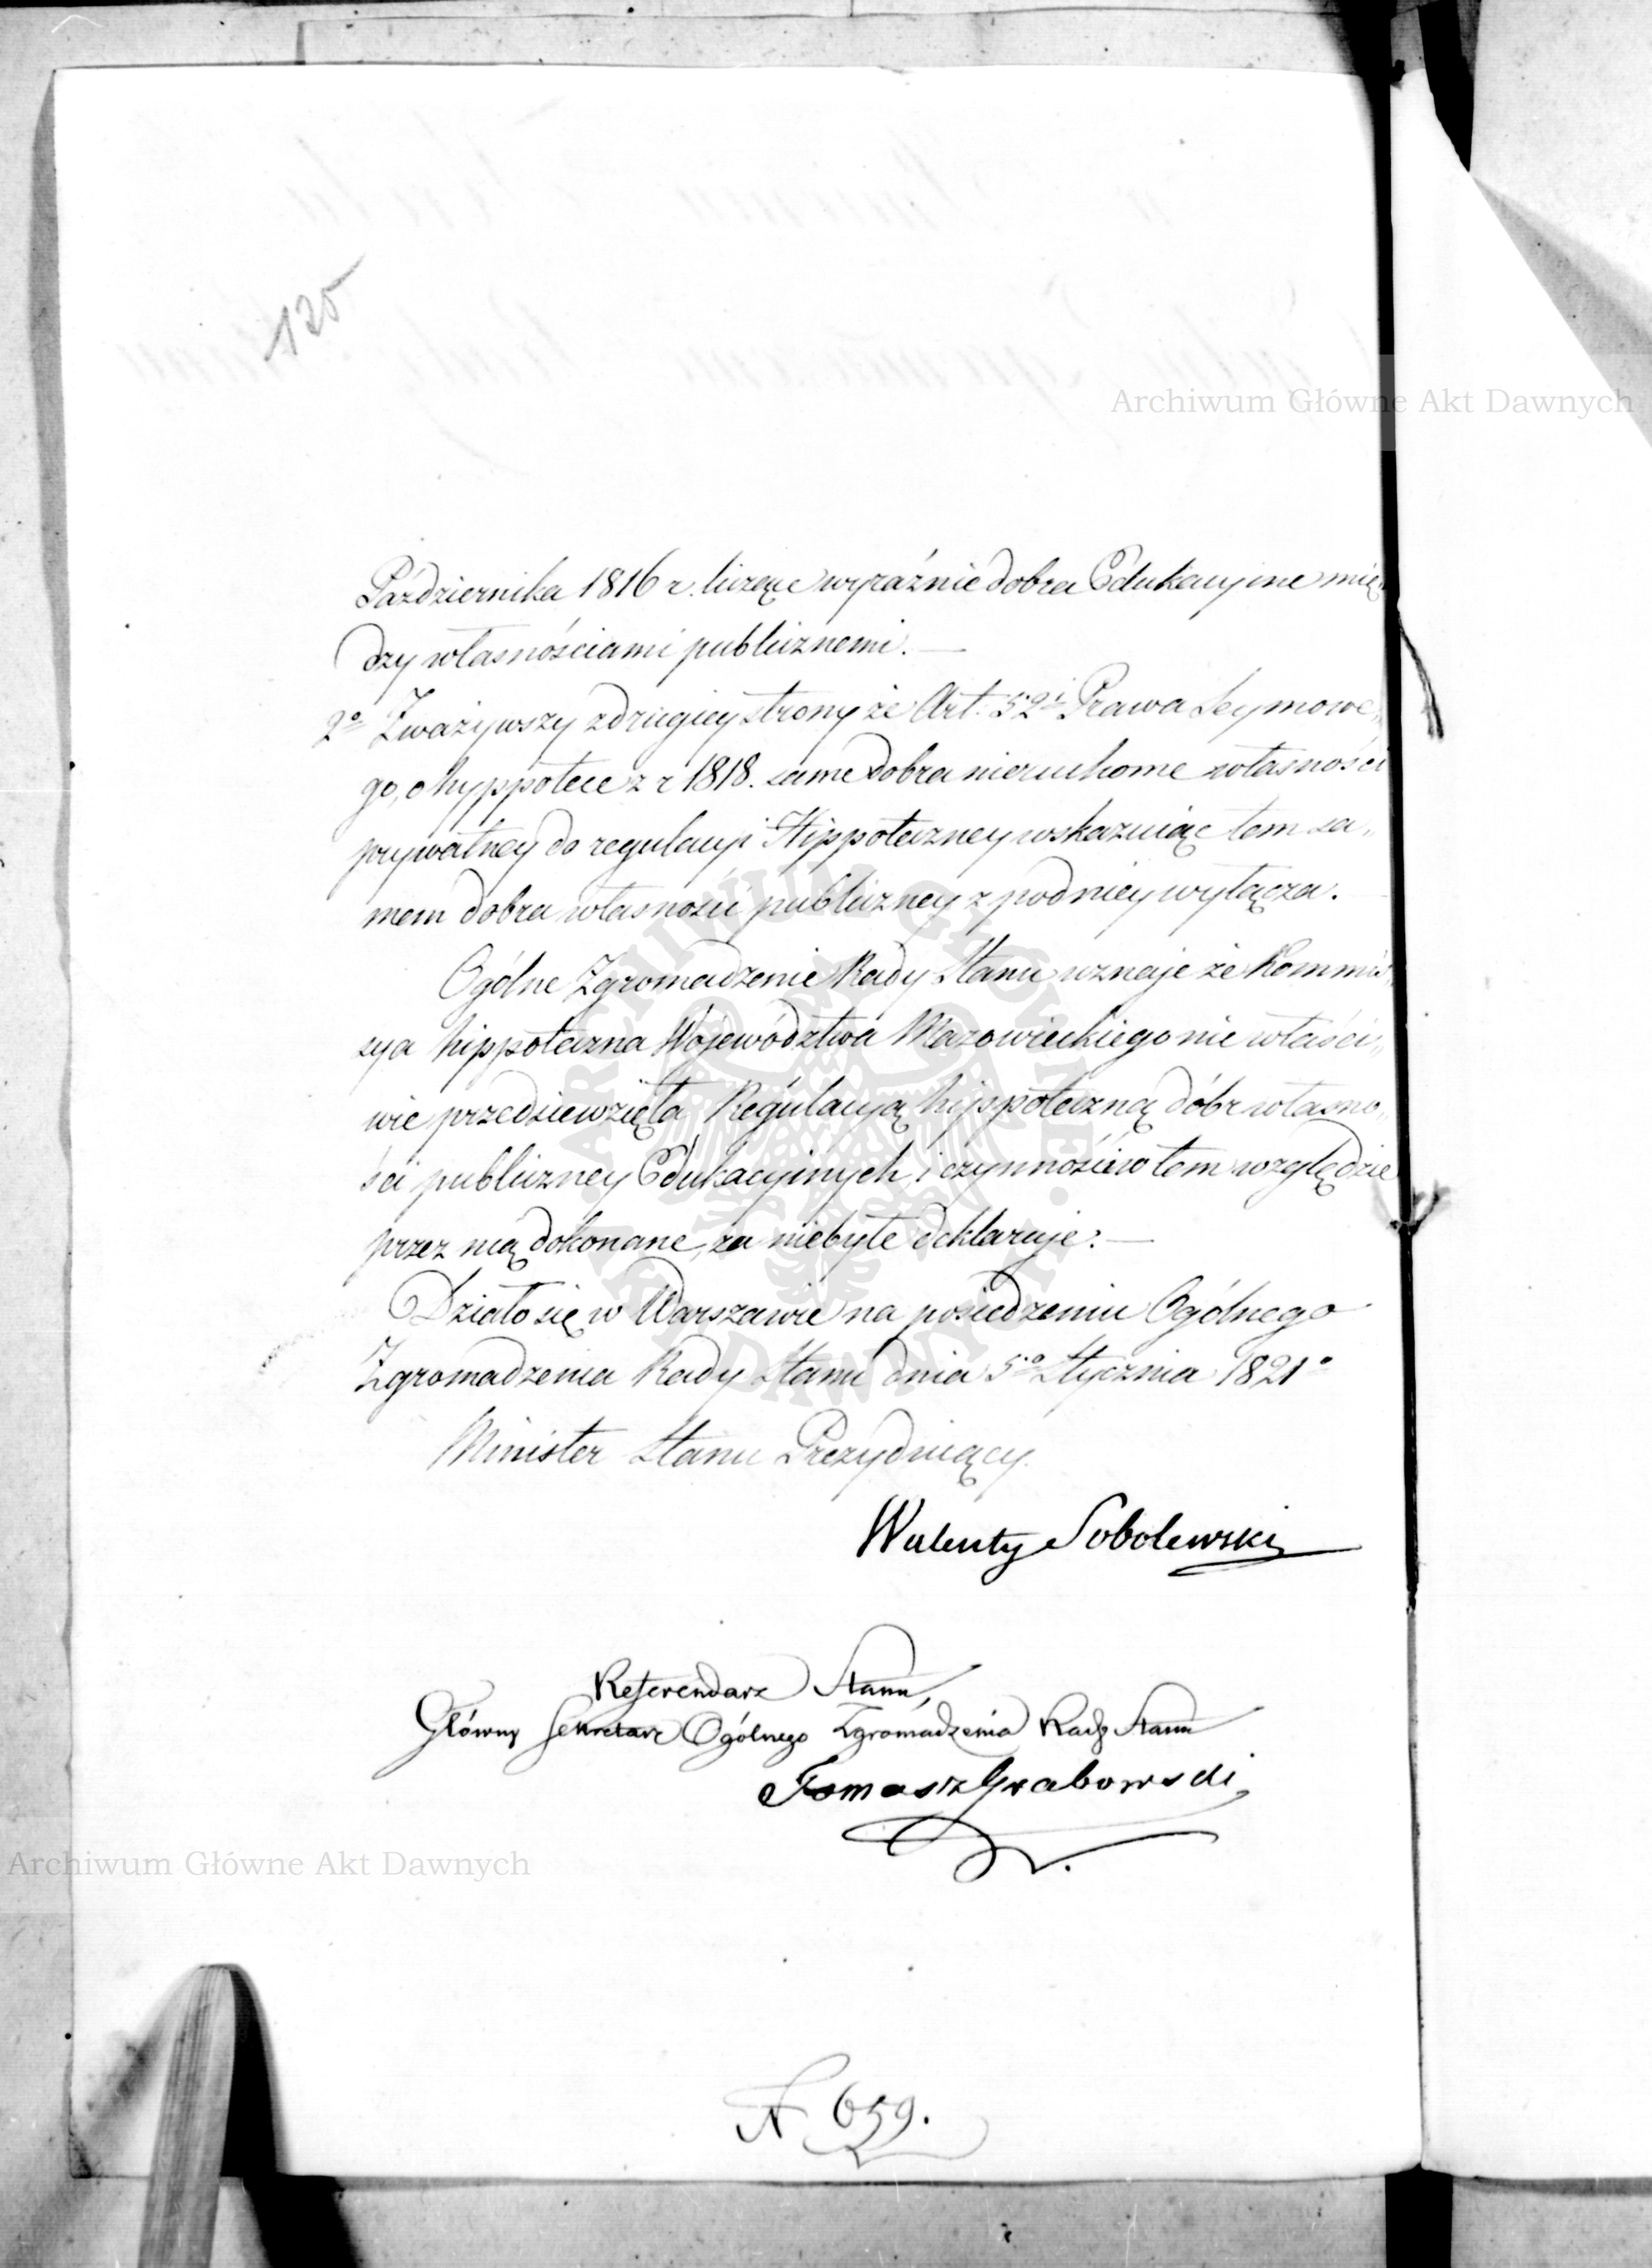 125
Archiwum Główne Akt Dawnych
Października 1816 r. liczące wyraźnie dobra Edukacyine mię„
dzy własnościami publicznemi. —
2º Zważywszy z drugiey strony że Art. 52i Prawa Seymowe„
go, o hyppotece z r 1818. same dobra nieruchome własności
prywatney do regulacyi Hippoteczney wskazuiąc tem sa„
mem dobra własności publiczney z pod niey wyłącza.
Ogólne Zgromadzenie Rady Stanu uznaje że Kommis„
sya hippoteczna Województwa Mazowieckiego nie właści„
wie przedsiewzięła Regulacyą hippoteczną dóbr własno„
ści publiczney Edukacyinych, i czynnoście w tem względzie
przez nią dokonane, za niebyłe deklaruje. —
Działo się w Warszawie na posiedzeniu Ogólnego
Zgromadzenia Rady Stanu dnia 5º Stycznia 1821º
Minister Stanu Prezyduiący.
Walenty Sobolewski
Referendarz Stanu,
Główny Sekretarz Ogólnego Zgromadzenia Rady Stanu
Tomasz Grabowski
Archiwum Główne Akt Dawnych
N 659.
ARCHIWUM GŁÓWNE AKT DAWNYCH